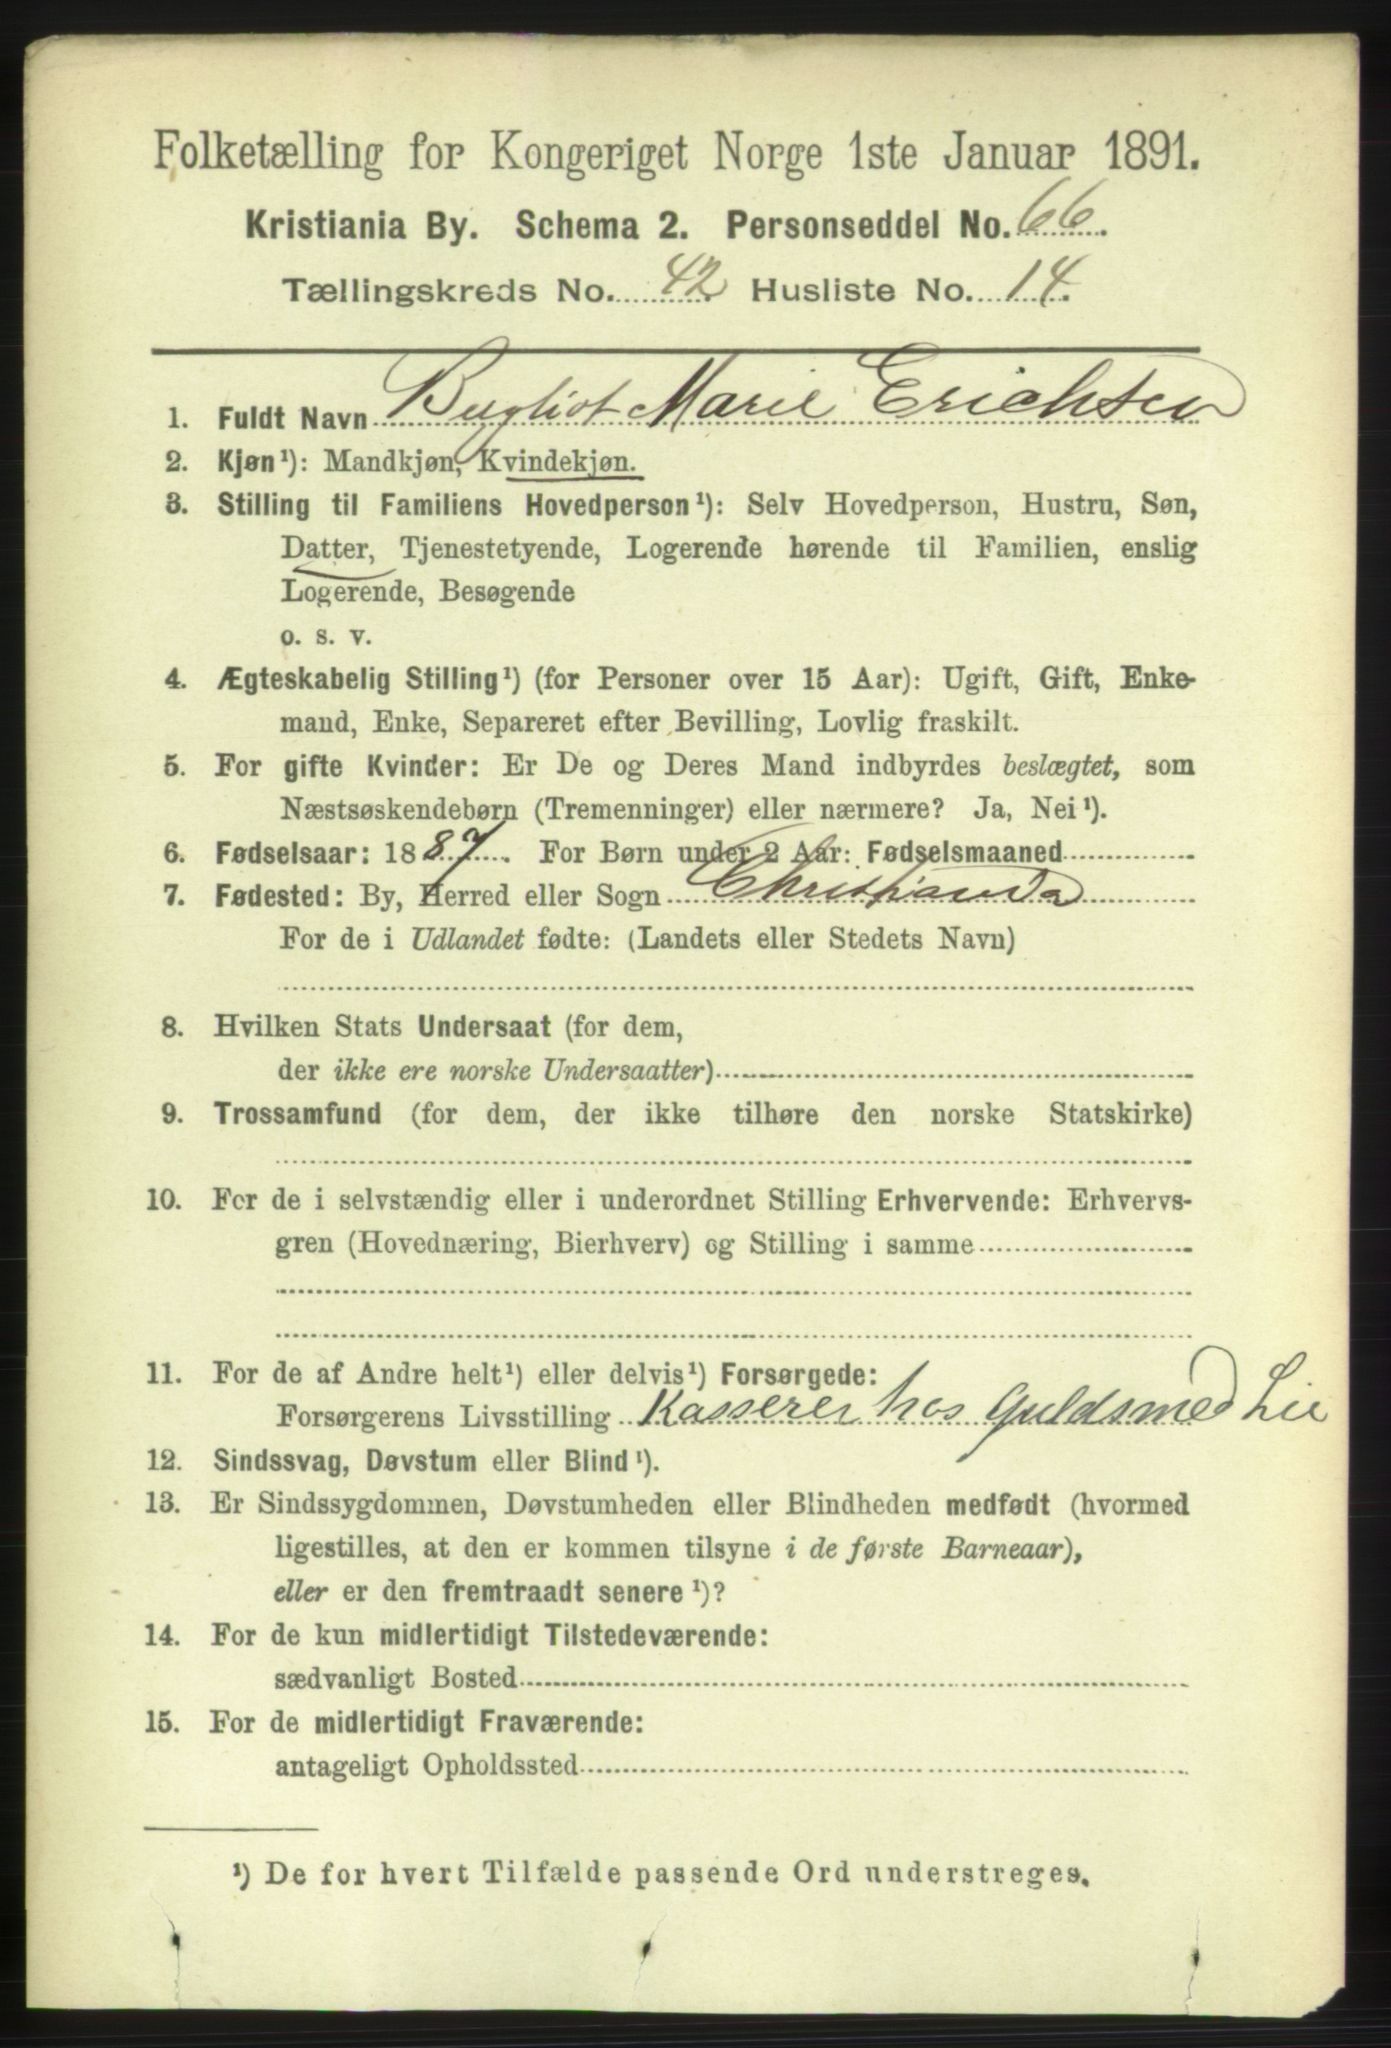 Folketælling for Kongeriget Norge 1ste Januar 1891.
Kristiania By. Schema 2. Personseddel No. 66.
Tællingskreds No. 42. Husliste No. 14.
1. Fuldt Navn Bergliot Marie Erichsen
2. Kjøn¹): Mandkjøn, Kvindekjøn.
3. Stilling til Familiens Hovedperson¹): Selv Hovedperson, Hustru, Søn,
Datter, Tjenestetyende, Logerende hørende til Familien, enslig
Logerende, Besøgende
o. s. v.
4. Ægteskabelig Stilling¹) (for Personer over 15 Aar): Ugift, Gift, Enke-
mand, Enke, Separeret efter Bevilling, Lovlig fraskilt.
5. For gifte Kvinder: Er De og Deres Mand indbyrdes beslægtet, som
Næstsøskendebørn (Tremenninger) eller nærmere? Ja, Nei¹).
6. Fødselsaar: 1887. For Børn under 2 Aar: Fødselsmaaned
7. Fødested: By, Herred eller Sogn Christiania
For de i Udlandet fødte: (Landets eller Stedets Navn)
8. Hvilken Stats Undersaat (for dem,
der ikke ere norske Undersaatter)
9. Trossamfund (for dem, der ikke tilhøre den norske Statskirke)
10. For de i selvstændig eller i underordnet Stilling Erhvervende: Erhvervs-
gren (Hovednæring, Bierhverv) og Stilling i samme
11. For de af Andre helt¹) eller delvis¹) Forsørgede:
Forsørgerens Livsstilling Kasserer hos Guldsmed Lie
12. Sindssvag, Døvstum eller Blind¹).
13. Er Sindssygdommen, Døvstumheden eller Blindheden medfødt (hvormed
ligestilles, at den er kommen tilsyne i de første Barneaar),
eller er den fremtraadt senere¹)?
14. For de kun midlertidigt Tilstedeværende:
sædvanligt Bosted
15. For de midlertidigt Fraværende:
antageligt Opholdssted
¹) De for hvert Tilfælde passende Ord understreges.